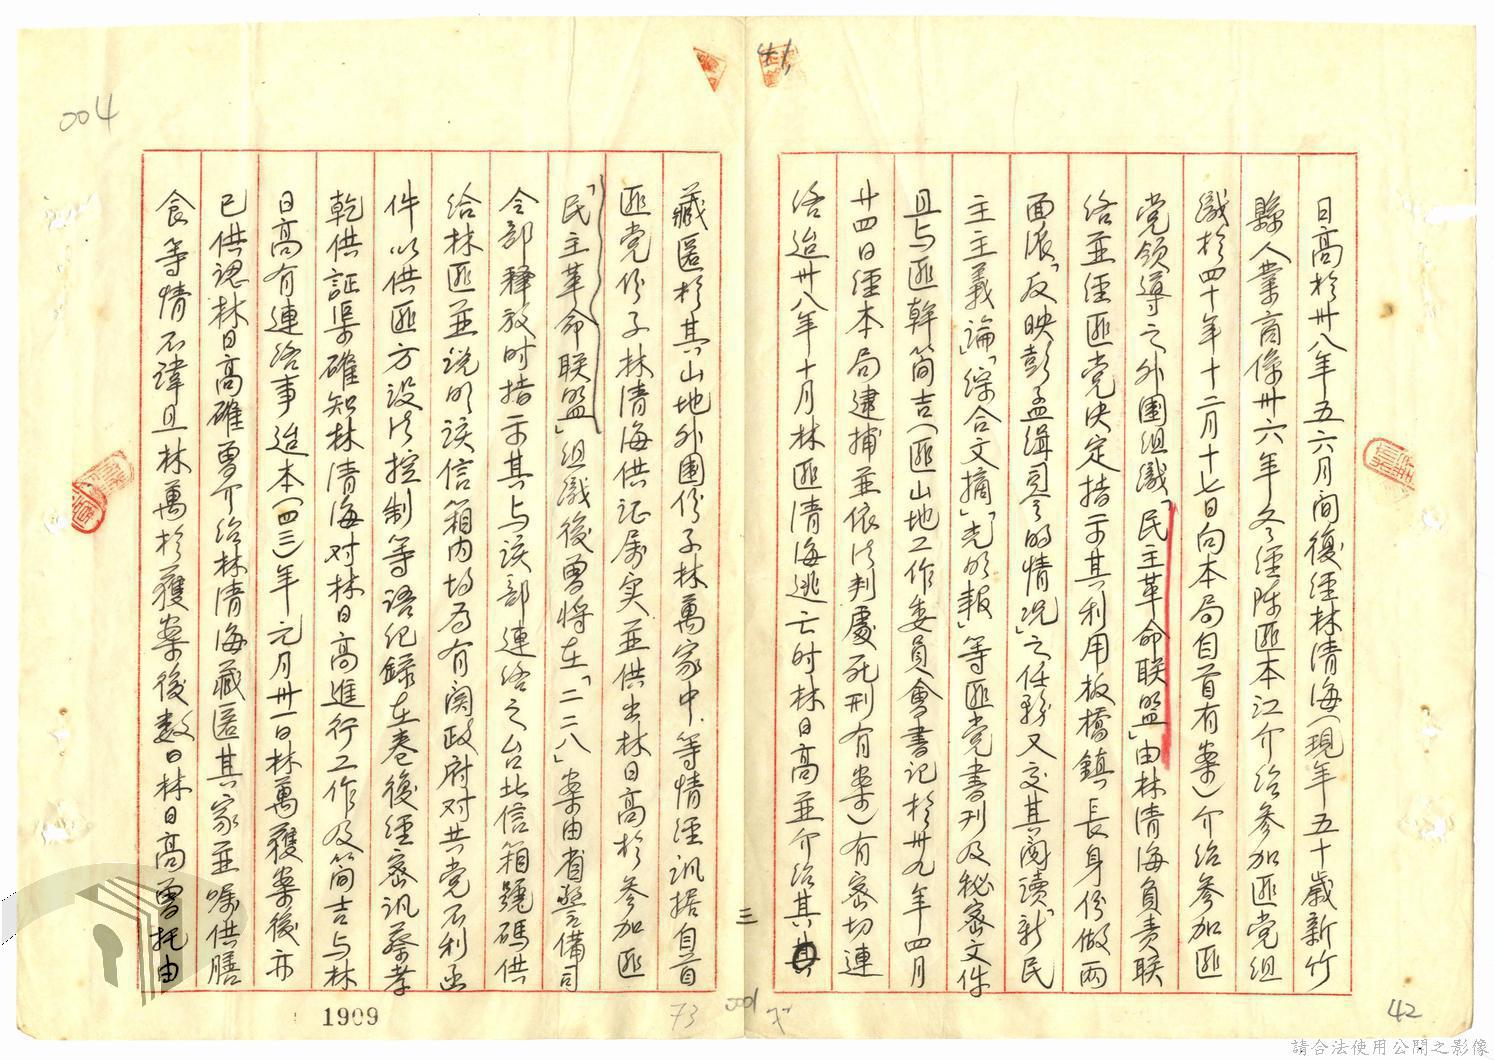 日高於卅八年五六月間復経林清海(現年五十歲新竹
縣人業商係卅六年冬経陈匪本江介给參加匪党组
織於四十年十二月十七日向本局自首有案)介给參加匪
党领導之外圍组織「民主革命联盟」由林清海負責联
络並経匪党决定指示其利用板橋鎮長身份做兩
面派「反映彭孟缉司令的情况」之任務又交其阅读「新民
主主義論」「综合文摘」「光明報」等匪党書刊及秘密文件
且与匪幹简吉(匪山地工作委員會書记於卅九年四月
廿四日経本局逮捕並依法判處死刑有案)有密切連
络迨卅八年十月林匪清海逃亡时林日高並介给其
藏匿於其山地外圍份子林萬家中等情経訊据自首
匪党份子林清海供证属实並供出林日高於參加匪
「民主革命联盟」组織後曾将在「二二八」案由省警備司
令部释放时指示其与该部連络之台北信箱號碼供
给林匪並说明该信箱内均为有関政府对共党不利函
件以供匪方設法控制等语纪録在卷後経密訊蔡孝
乾供証渠確知林清海对林日高進行工作及简吉与林
日高有連络事迨本(四三)年元月卅一日林萬獲案後亦
已供認林日高確曾介给林清海藏匿其家並嘱供膳
食等情不諱且林萬於獲案後数日林日高曾托由
三
004
41
42
73
0001
1909
請合法使用公開之影像